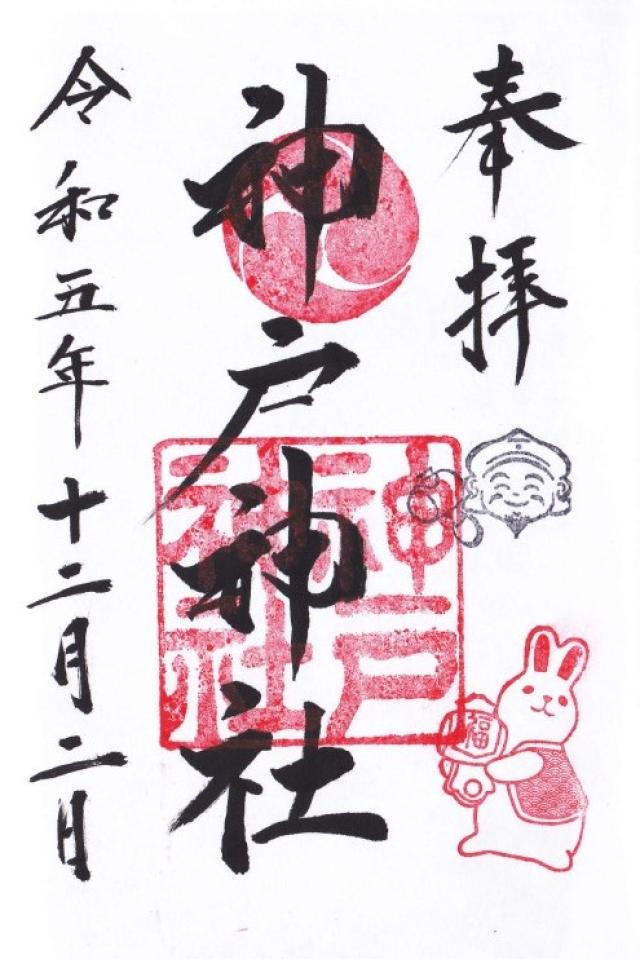 奉拝
神戸神社
神戸
神社
福
令和五年十二月二日